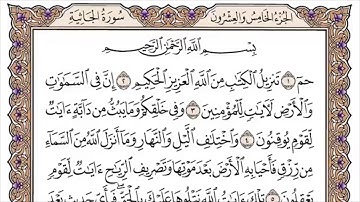 الجزء الخامس والعشرون
سورة الجاثية
بِسْمِ ٱللَّهِ ٱلرَّحْمَٰنِ ٱلرَّحِيمِ
حمٓ ١ تَنزِيلُ ٱلْكِتَٰبِ مِنَ ٱللَّهِ ٱلْعَزِيزِ ٱلْحَكِيمِ ٢ إِنَّ فِى ٱلسَّمَٰوَٰتِ
وَٱلْأَرْضِ لَءَايَٰتٍ لِّلْمُؤْمِنِينَ ٣ وَفِى خَلْقِكُمْ وَمَا يَبُثُّ مِن دَآبَّةٍ ءَايَٰتٌ
لِّقَوْمٍ يُوقِنُونَ ٤ وَٱخْتِلَٰفِ ٱلَّيْلِ وَٱلنَّهَارِ وَمَآ أَنزَلَ ٱللَّهُ مِنَ ٱلسَّمَآءِ
مِن رِّزْقٍ فَأَحْيَا بِهِ ٱلْأَرْضَ بَعْدَ مَوْتِهَا وَتَصْرِيفِ ٱلرِّيَٰحِ ءَايَٰتٌ لِّقَوْمٍ
يَعْقِلُونَ ٥ تِلْكَ ءَايَٰتُ ٱللَّهِ نَتْلُوهَا عَلَيْكَ بِٱلْحَقِّ فَبِأَىِّ حَدِيثٍۭ بَعْدَ